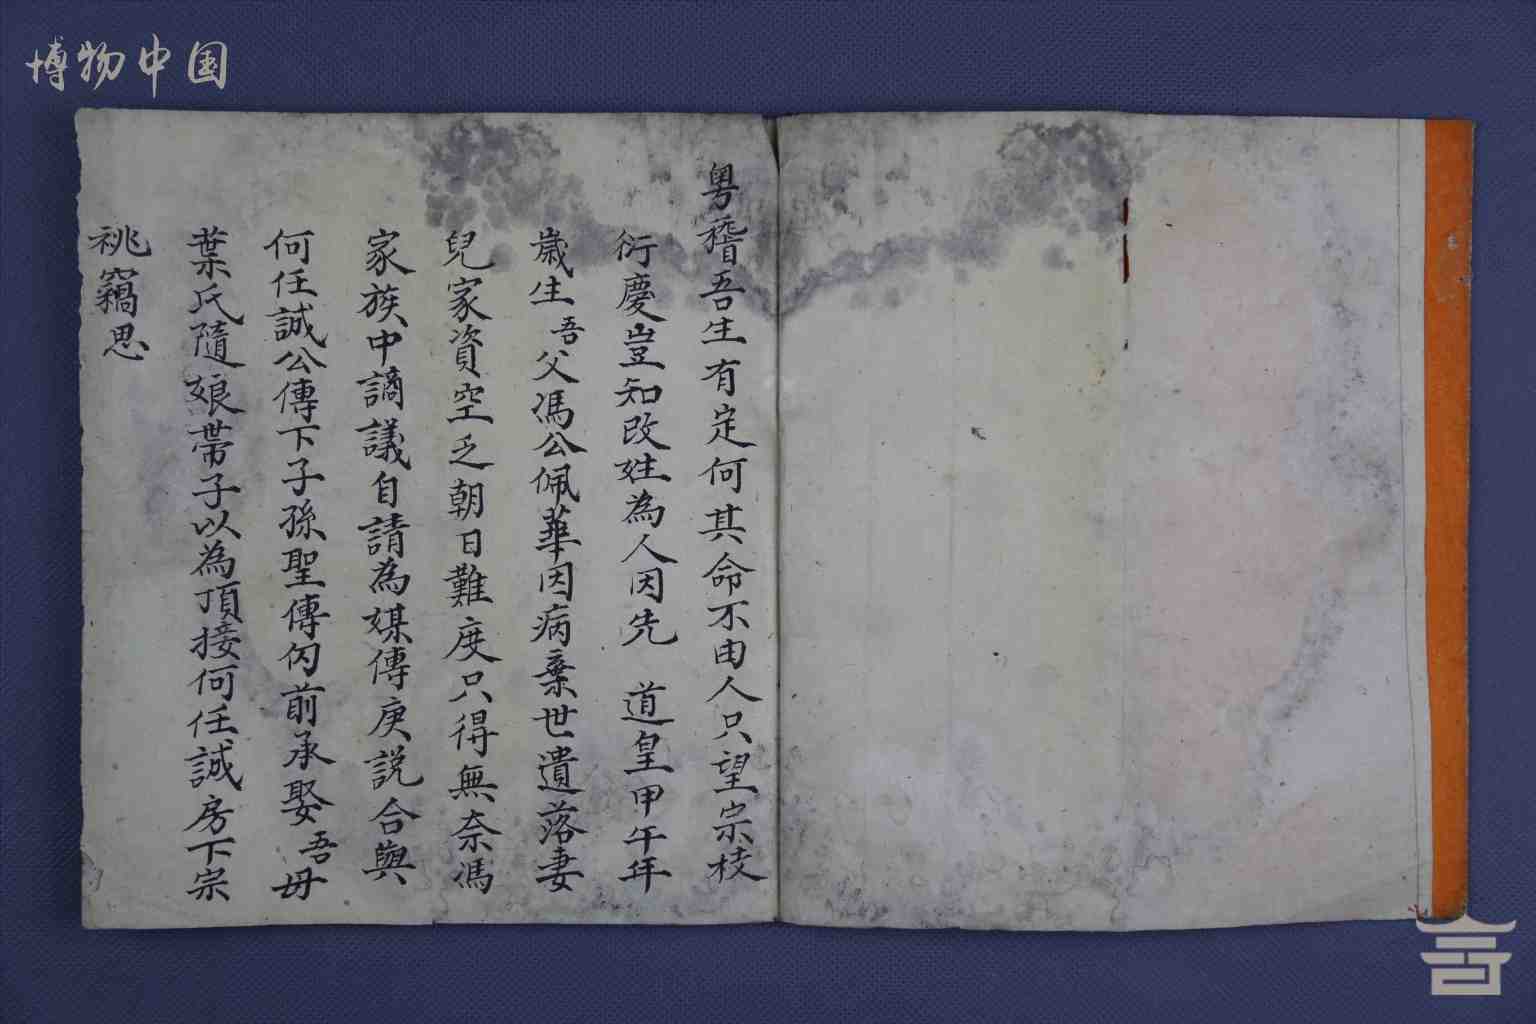 博物中国
粵稽吾生有定何其命不由人只望宗枝
衍慶豈知改姓為人因先　道皇甲午年
歲生吾父馮公佩華因病棄世遺落妻
兒家資空乏朝日難度只得無奈馮
家族中謪議自請為媒傳庚説合與
何任誠公傳下子孫聖傳內前承娶吾母
葉氏隨娘帶子以為頂接何任誠房下宗
祧竊思